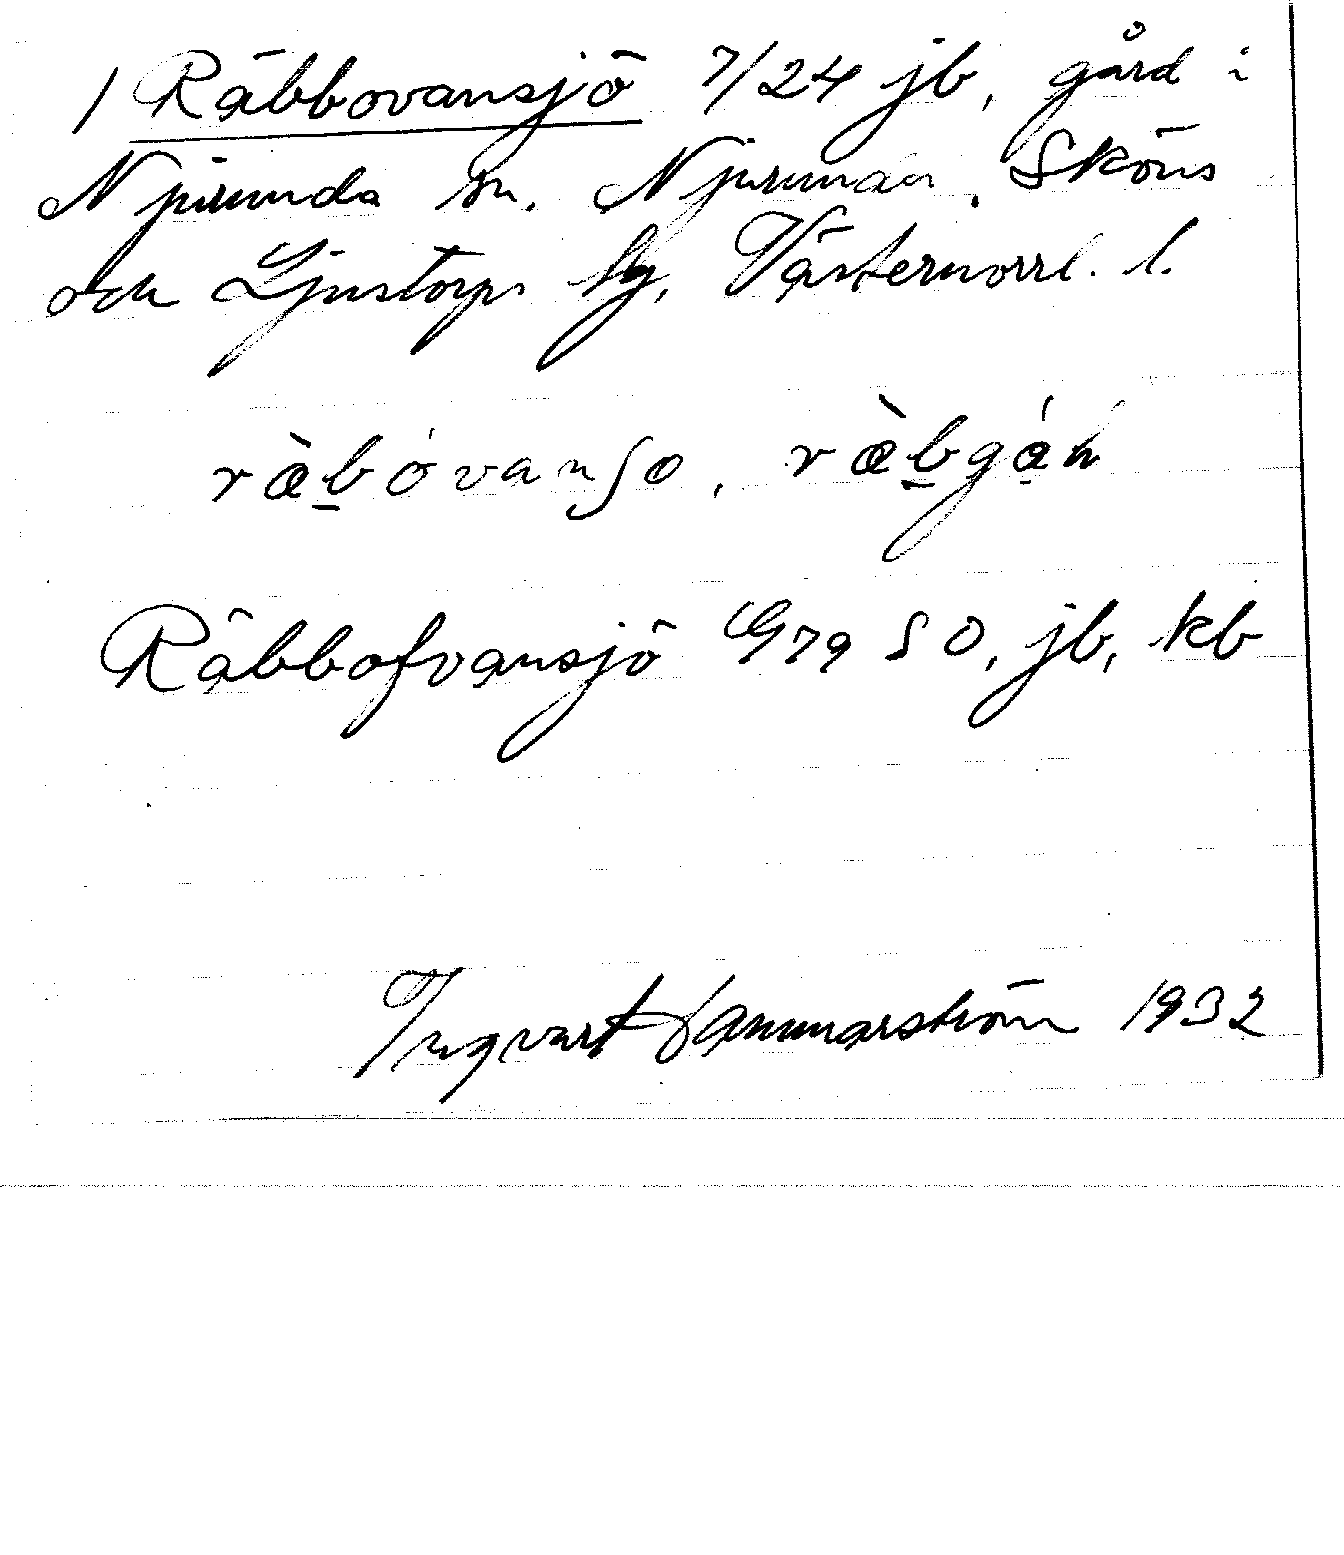 1 Räbbovansjö 7/24 jb, gård i
Njurunda sn. Njurunda, Sköns
och Ljustorps tg, Västernorrl. l.
ræ̀b̲óvanʃo, ræ̀b̲gáɳ
Räbbofvansjö G79 SO, jb, kb
Ingvart Hammarström 1932